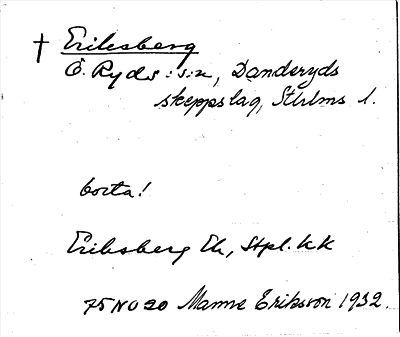 † Eriksberg
Ö. Ryds s:n, Danderyds
skeppslag, Sthlms l.
borta!
Eriksberg Eh, Stpl. kk
75 NO 20 Manne Eriksson 1932.